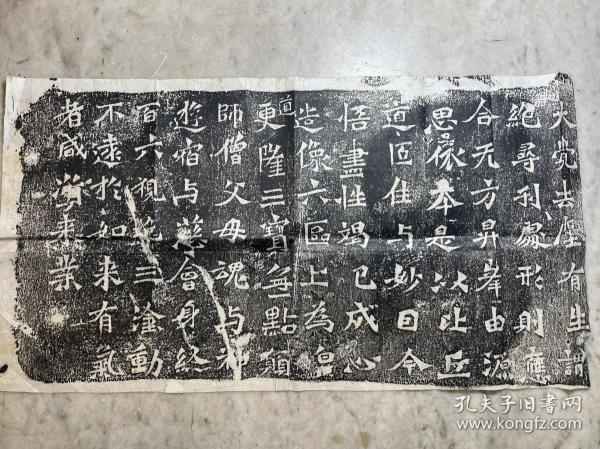 大覺去塵有生謂
絕尋刹處形則應
合无方昇峯由源
思依本是以比丘
道匠住与妙目今
悟盡性竭己成心
造像六區上為皇
道更隆三寶無點
師僧父母魂与神
遊宿与慈會身終
百六視絕三塗動
不遠於如来有氣
者咸資来業
孔夫子旧書网
www.kongfz.com